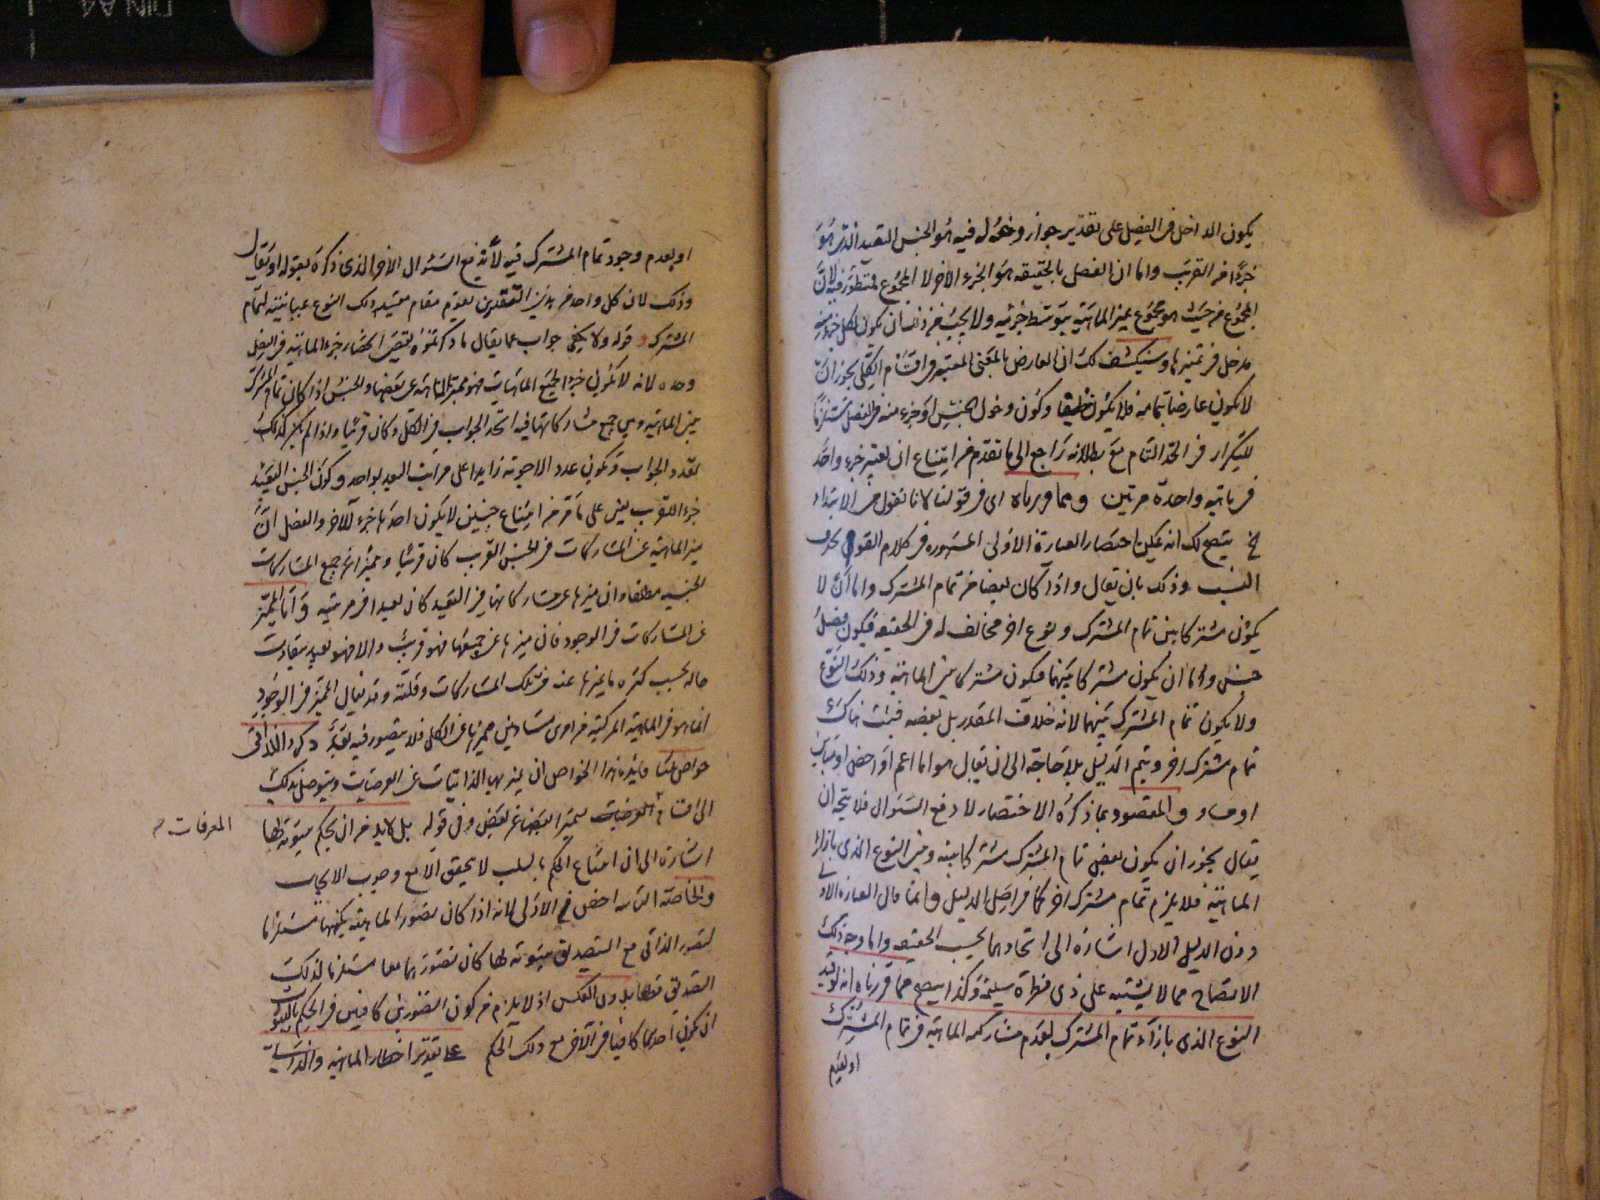 يكون الداخل في الفصل على تقدير جواز دخوله فيه هو الجنس البعيد الذي هو
جزء آخر القريب واما ان الفصل بالحقيقة هو الجزء الآخر لا المجموع فمنظور فيه لان
المجموع من حيث هو مجموع يميز الماهية بتوسط جزئيه ولا يجب في ذلك ان يكون لكل جزء منه
مدخل في تميزها وسينكشف لك ان العارض بالمعنى المعتبر في اقسام الكلي يجوز ان
لا يكون عارضا بتمامه فلا يكون وكون دخول الجنس او جزء منه في الفصل مستلزما
للتكرار في الحد التام مع بطلانه راجع الى ما تقدم من امتناع ان يعتبر جزء واحد
في ماهية واحدة مرتين ومما قررناه اي في قولنا لانا نقول من الابتداء
يتضح لك انه يمكن اختصار العبارة الاولى المشهورة في كلام القوم بحذف
النسب وذلك بان يقال واذا كان بعضا من تمام المشترك واما ان لا
يكون مشتركا بين تمام المشترك ونوع آخر مخالف له في الحقيقة فيكون فصل
جنس واما ان يكون مشتركا بينهما فيكون مشتركا بين الماهية وذلك النوع
ولا يكون تمام المشترك بينهما لانه خلاف المقدر بل بعضه فيثبت هناك
تمام مشترك آخر ويتم الدليل بلا حاجة الى ان يقال هو اما اعم او اخص او مباين
او مساو والمقصود بما ذكره الاختصار لا دفع السؤال فلا يتجه ان
يقال يجوز ان يكون بعض تمام المشترك مشتركا بينه وبين النوع الذي بازاء
الماهية فلا يلزم تمام مشترك آخر كما في اصل الدليل وانما قال العبارة الاولى
دون الدليل الاول اشارة الى اتحادهما بحسب الحقيقة واما وجه ذلك
الاتضاح مما لا يشتبه على ذي فطرة سليمة وكذا يتضح مما قررناه انه لو قيد
النوع الذي بازاء تمام المشترك بعدم مشاركة الماهية في تمام المشترك
او بعدم
او بعدم وجود تمام المشترك فيه لأنه مع السؤال الآخر الذي ذكره بقوله او يقال
وذلك لان كل واحد من هذين التقييدين يقوم مقام تقييد ذلك النوع بمباينته لتمام
المشترك قوله ولا يكفي جواب عما يقال ما ذكرتموه يقتضي انحصار جزء الماهية في الفصل
وحده لانه لا يكون جزءا لجميع الماهيات فهو مميز للماهية عن بعضها والجنس اذا كان تمام المشترك
بين الماهية وبين جميع مشاركاتها فيه اتحد الجواب في الكل وكان قريبا واذا لم يكن كذلك
تعدد الجواب ويكون عدد الاجوبة زايدا على مراتب البعد بواحد وكون الجنس البعيد
جزء القريب يبنى على ما مر من امتناع جنسين لا يكون احدهما جزء الآخر والفصل ان
ميز الماهية عن المشاركات في الجنس القريب كان قريبا ومميزا عن جميع المشاركات
الجنسية مطلقا وان ميزها عن مشاركاتها في البعيد كان بعيدا في مرتبته واما المميز
عن المشاركات في الوجود فان ميزها عن جميعها فهو قريب والا فهو بعيد يتفاوت
حاله بحسب كثرة ما يميزها عنه من تلك المشاركات وقلته وقد يقال المميز في الوجود
انما هو في الماهية المركبة من امرين متساويين مميزها عن الكل فلا يتصور فيه بعد ذكروا للذاتي
خواص ثلثا فايدة هذا الخواص ان يميز بها الذاتيات عن العرضيات ويتوصل بذلك
الى اقسام المعرفات بتميز بعضها عن بعض وفي قوله بل لابد من ان يحكم بثبوته لها
المعرفات
اشارة الى ان امتناع الحكم بالسلب لا يتحقق الا مع وجوب الايجاب
والخاصة الثانية اخص من الاولى لانه اذا كان تصور الماهية بكنهها مستلزما
لتصور الذاتي مع التصديق بثبوته لها كان تصورهما معا مستلزما لذلك
التصديق قطعا بدون العكس اذ لا يلزم من كون التصورين كافيين في الحكم بالثبوت
ان يكون احدهما كافيا في الآخر مع ذلك الحكم على تقدير اخطار الماهية والذاتيات